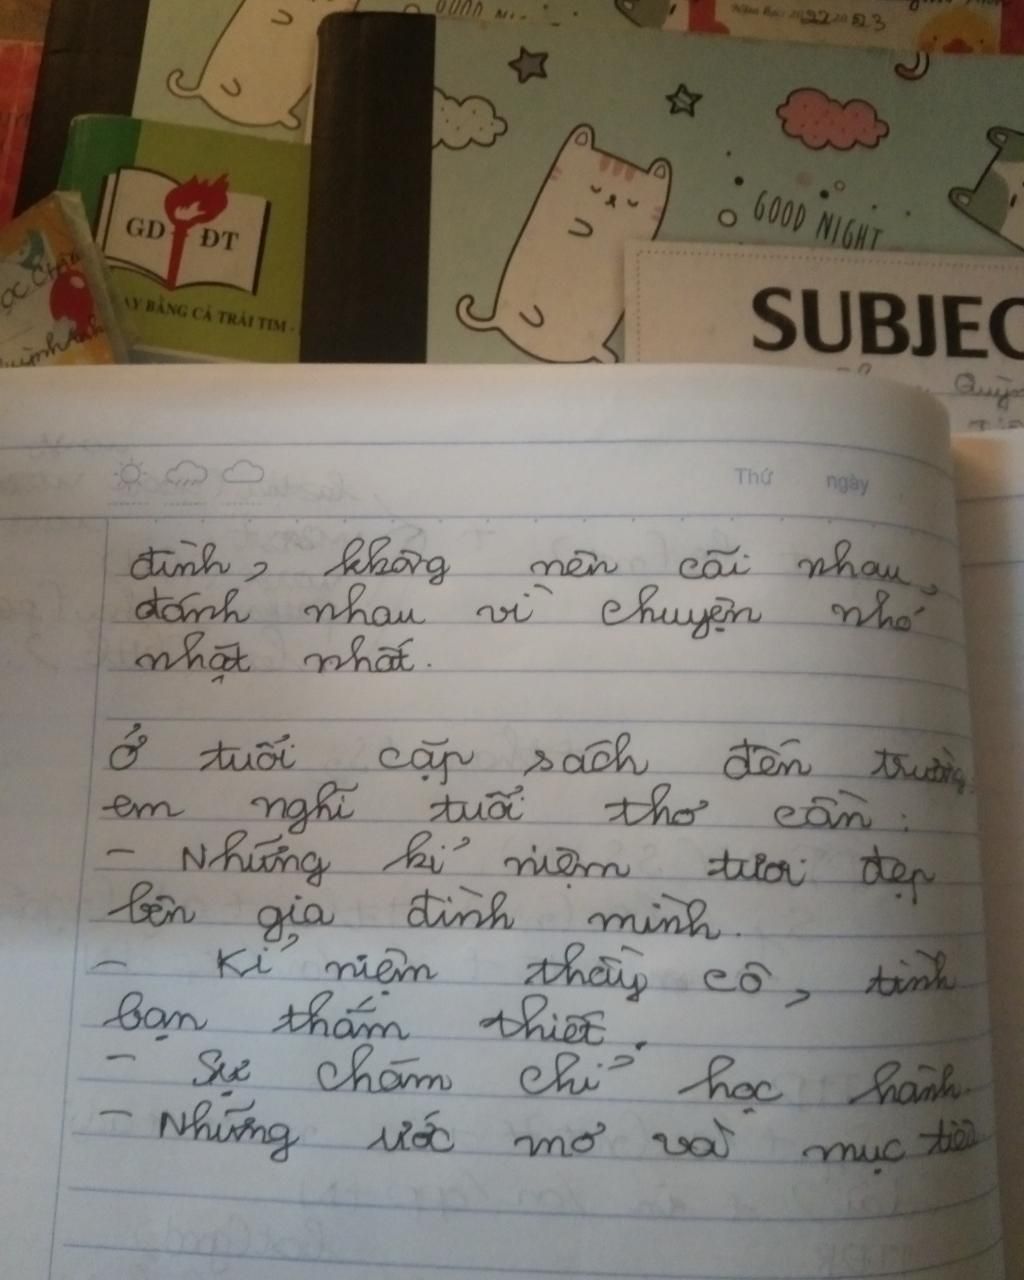 GOOD NIGHT
GD ĐT
BẰNG CẢ TRÁI TIM -
GOOD NIGHT
SUBJEC
Thứ ngày
đình, không nên cãi nhau,
đánh nhau vì chuyện nhỏ
nhặt nhất.
Ở tuổi cặp sách đến trường
em nghĩ tuổi thơ cần:
- Những kỉ niệm tươi đẹp
bên gia đình mình.
- Kỉ niệm thầy cô, tình
bạn thắm thiết.
- Sự chăm chỉ học hành.
- Những ước mơ và mục tiêu